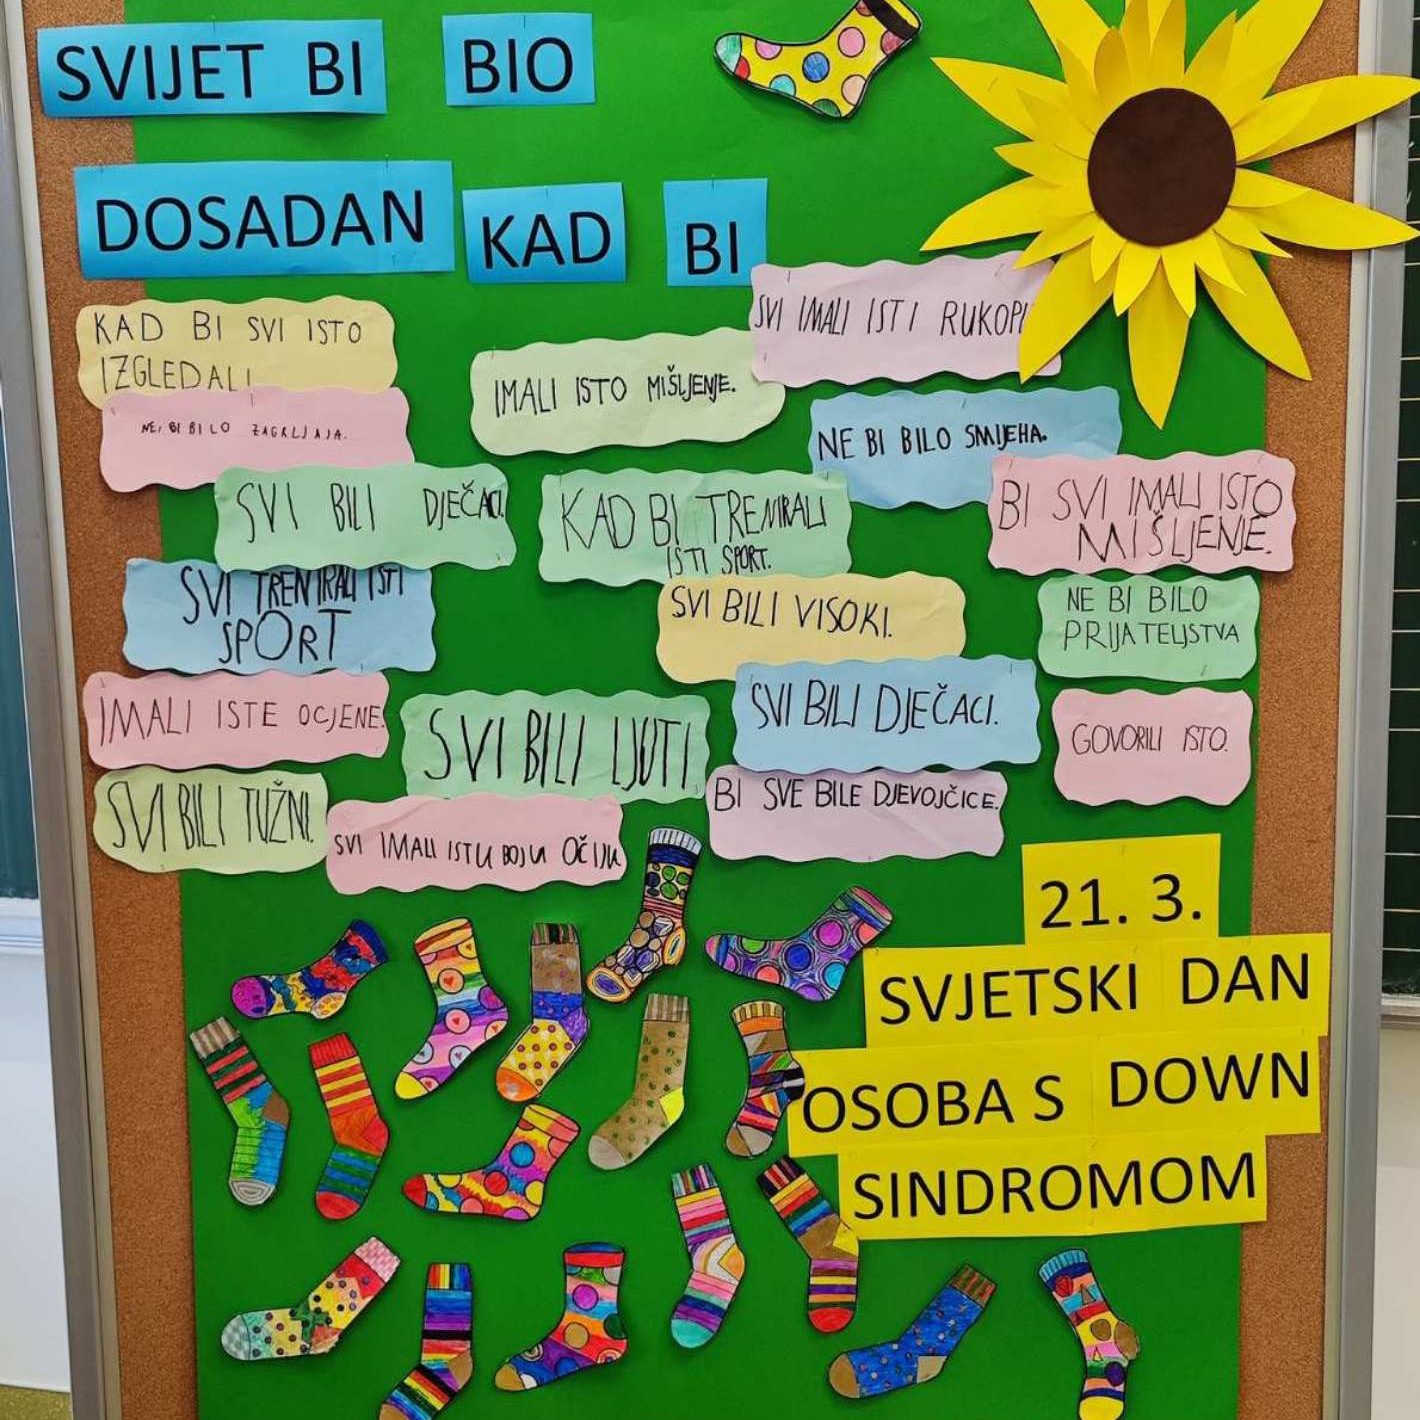 SVIJET BI BIO
DOSADAN KAD BI
KAD BI SVI ISTO
IZGLEDALI
NE BI BILO ZAGRLJAJA.
IMALI ISTO MIŠLJENJE.
SVI IMALI ISTI RUKOPI
NE BI BILO SMIJEHA.
SVI BILI DJEČACI.
KAD BI TRENIRALI
ISTI SPORT.
BI SVI IMALI ISTO
MIŠLJENJE.
SVI TRENIRALI ISTI
SPORT
SVI BILI VISOKI.
NE BI BILO
PRIJATELJSTVA
IMALI ISTE OCJENE.
SVI BILI LJUTI
SVI BILI DJEČACI.
GOVORILI ISTO.
SVI BILI TUŽNI.
SVI IMALI ISTU BOJU OČIJU
BI SVE BILE DJEVOJČICE.
21. 3.
SVJETSKI DAN
OSOBA S DOWN
SINDROMOM